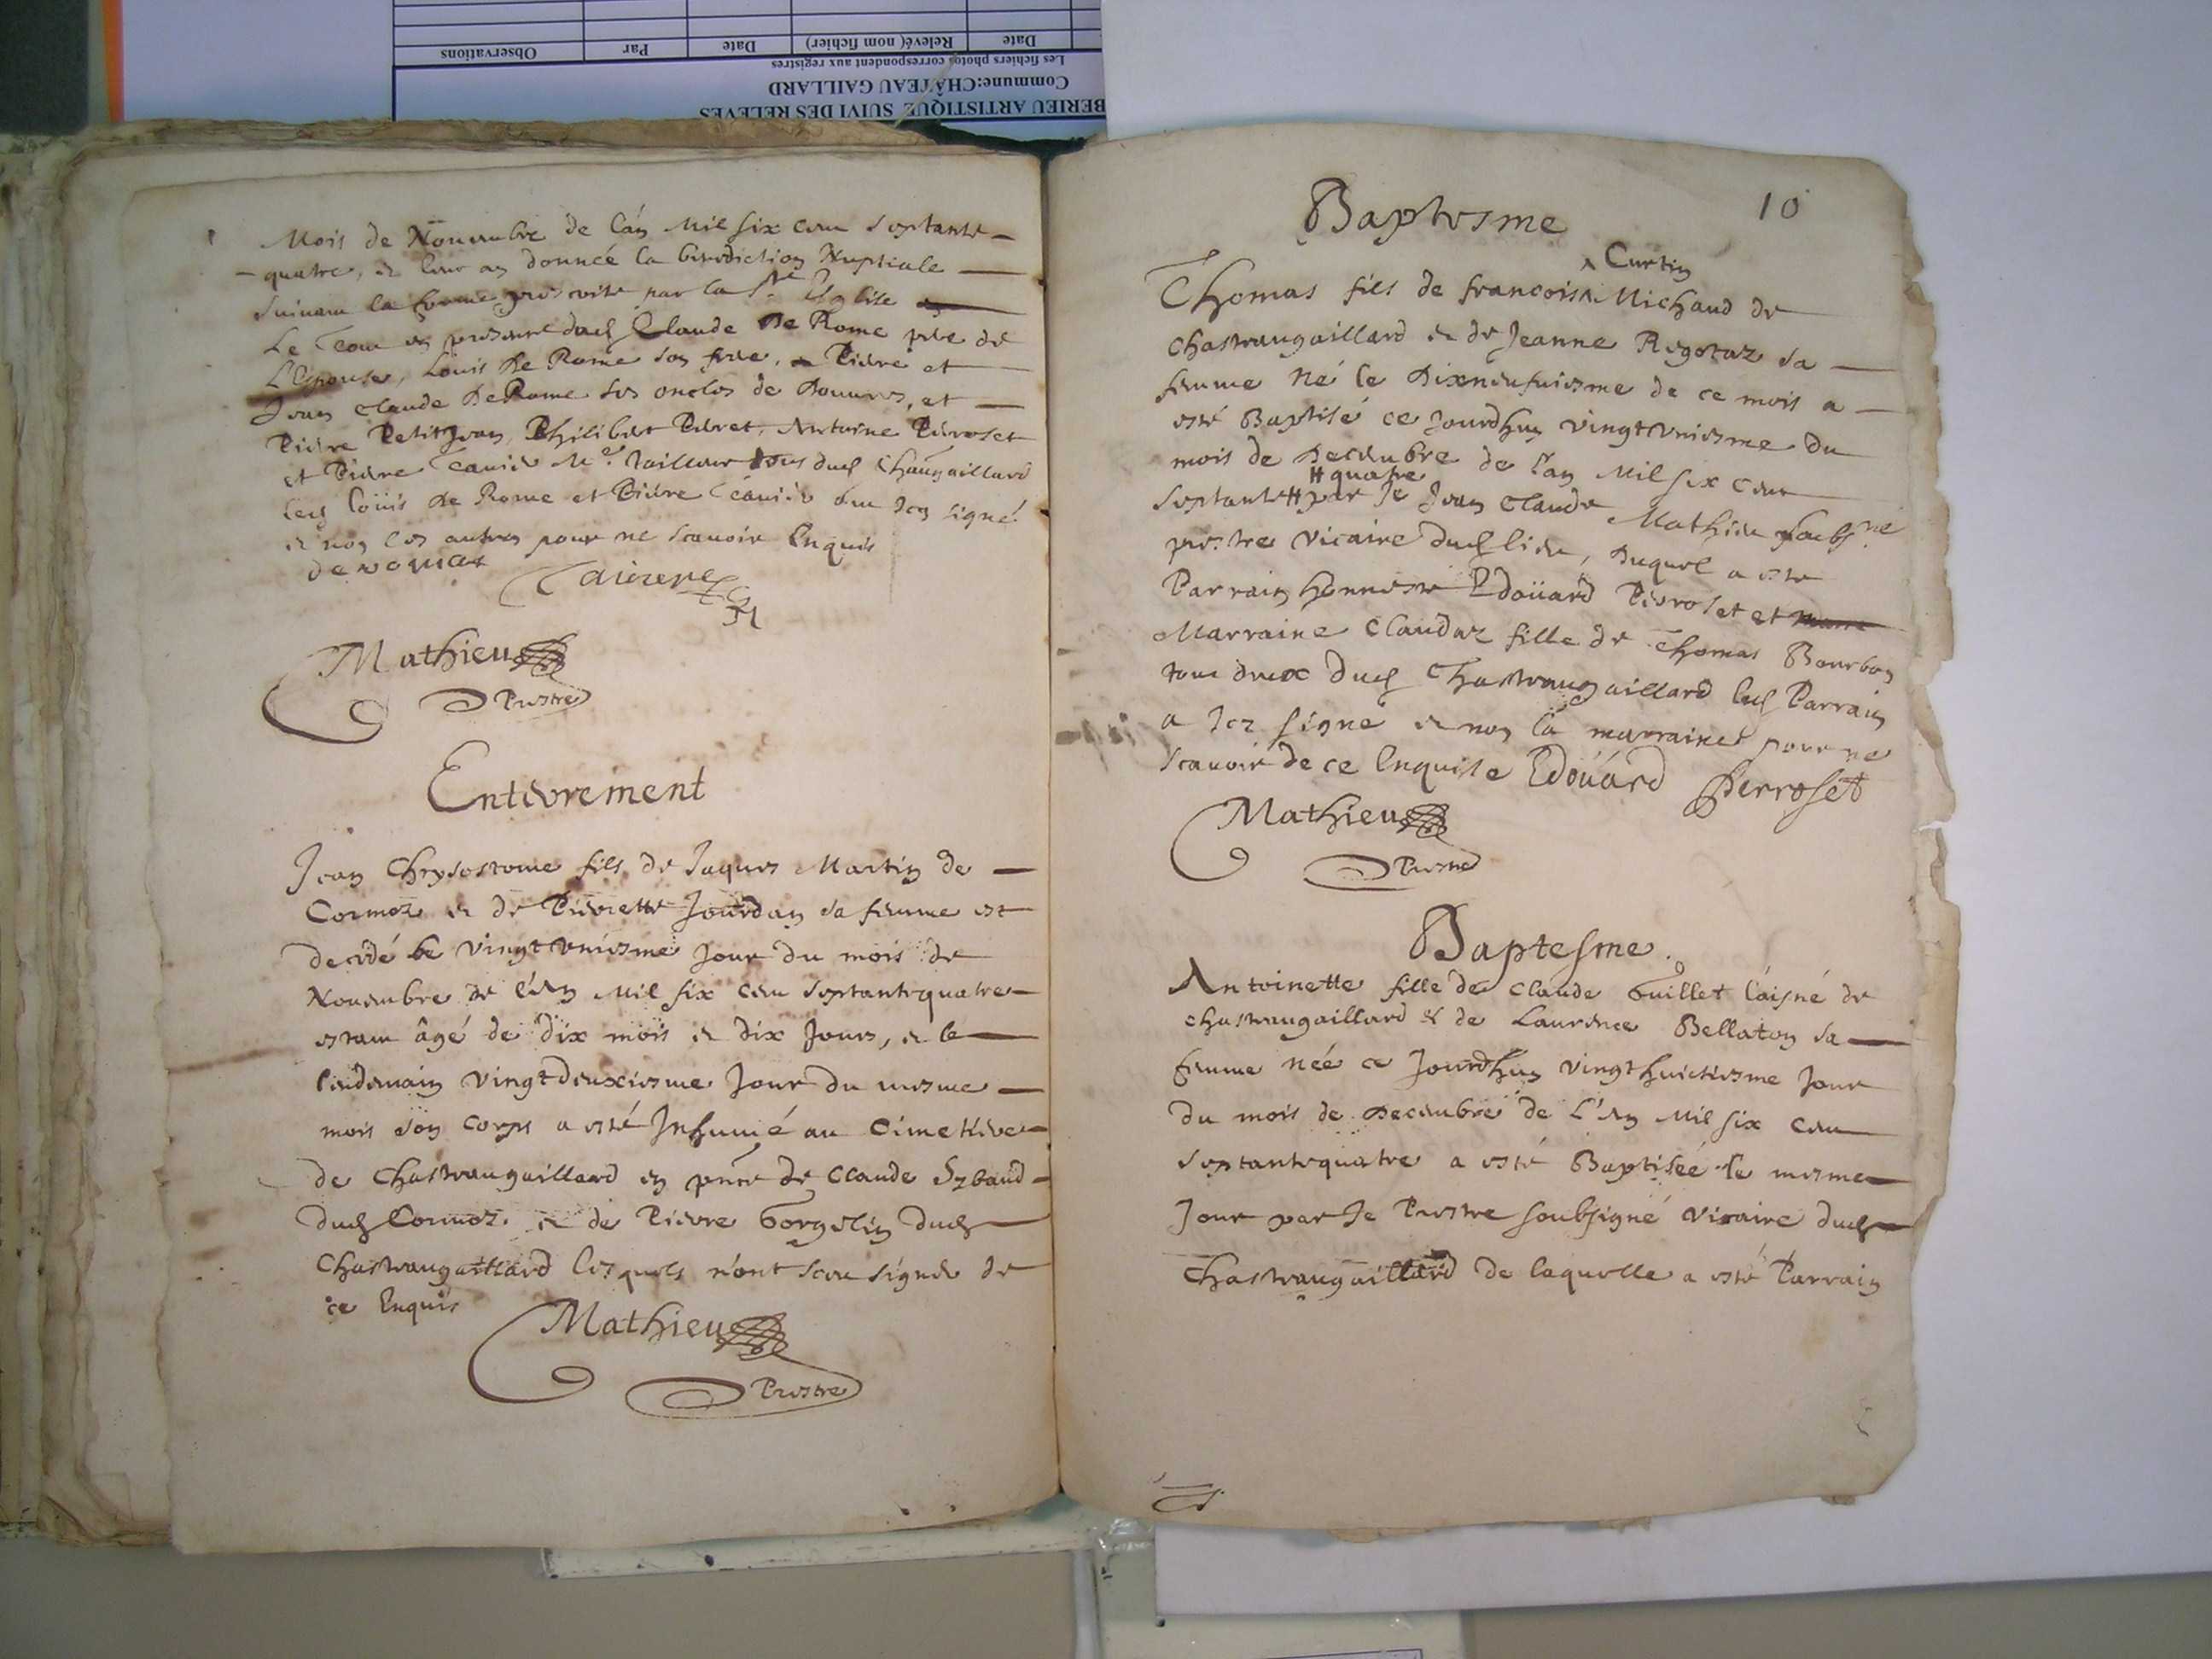 Observations
Par
Date
Relevé( nom fichier)
Date
Les fichiers photos correspondent aux registres
Commune:CHÂTEAU GAILLARD
BERIEU ARTISTIQUE SUIVI DES RELEVES
Mois de Nouembre de l'an Mil six cens septante
quatre, et leur ay donnée la benediction Nuptiale
suiuant la forme prescrite par la Ste Eglise
Le tout en presence dud Claude De Rome pere de
L'Espouse, Louis De Rome son frere, Pierre et
Jean Claude De Rome ses oncles de Douures, et
Pierre Petit Jean, Philibert Perret, Antoine Perroset
et Pierre Me tailleur tous dud Chaugaillard
led Loüis De Rome et Pierre ont Icy signé
et non les autres pour ne scauoir Enquis
Mathieu
Prestre
Enterrement
Jean Chrysostome fils de Jaques Martin de
Cormoz et de Pierrette Jourdan sa femme est
decedé le vingt vniesme Jour du mois de
Nouembre de l'an Mil six cens septante quatre
estant âgé de dix mois et dix Jours, et le
lendemain vingt deuxiesme Jour du mesme
mois son corps a esté Inhumé au Cimetiere
de Chasteaugaillard en pnce de Claude
dud Cormoz et de Pierre Gorgelin dud
Chasteaugaillard lesquels n'ont sceu signer de
ce Enquis
Mathieu
Prestre
10
Baptesme
Curtin
Thomas fils de francois Michaud de
Chasteaugaillard et de Jeanne Regotaz sa
femme Né le Dixneufuiesme de ce mois a
esté Baptisé ce Jourdhuy vingt vniesme du
mois de Decembre de l'an Mil six cens
quatre
septante par Je Jean Claude Mathieu soubsné
prestre vicaire dud lieu, Duquel a este
Parrain honneste Edoüard Perroset et
Marraine Claudaz fille de Thomas Bourbon
tous deux dud Chasteaugaillard led Parrain
a Icy signé et non la marraine pour ne
scauoir de ce Enquise Edoüard Perroset
Mathieu
Prestre
Baptesme.
Antoinette fille de Claude Guillet l'aisné de
Chasteaugaillard & de Laurence Bellaton sa
femme née ce Jourdhuy vingt huictiesme Jour
du mois de Decembre de L'an Mil six cens
septante quatre a esté Baptisée le mesme
Jour par Je Prestre soubsigné vicaire dud
Chasteaugaillard de laquelle a esté Parrain